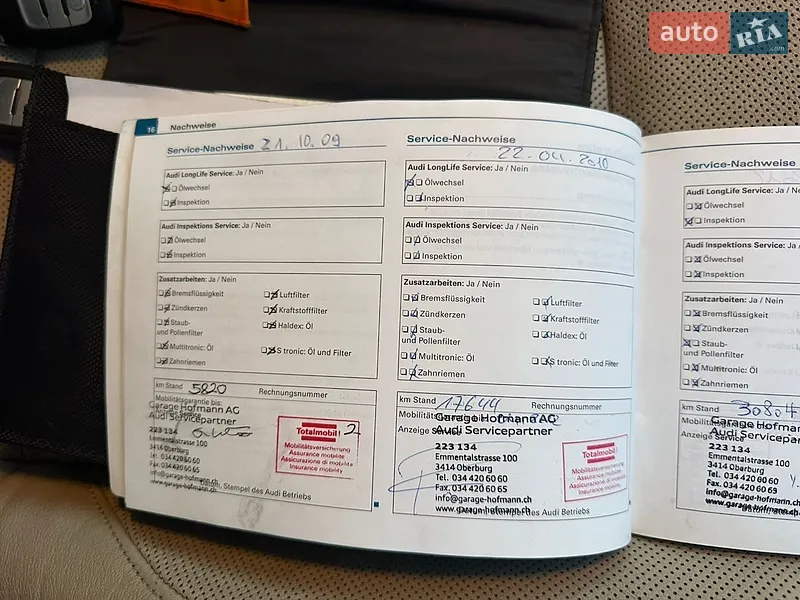 auto RIA .com
16 Nachweise
Service-Nachweise 21.10.09
Audi LongLife Service: Ja / Nein
Ölwechsel
Inspektion
Audi Inspektions Service: Ja / Nein
Ölwechsel
Inspektion
Zusatzarbeiten: Ja / Nein
Bremsflüssigkeit
Luftfilter
Zündkerzen
Kraftstofffilter
Staub-
und Pollenfilter
Haldex: Öl
Multitronic: Öl
S tronic: Öl und Filter
Zahnriemen
km Stand 5820
Rechnungsnummer
Mobilitätsgarantie bis:
Garage Hofmann AG
Audi Servicepartner
223 134
Emmentalstrasse 100
3414 Oberburg
Tel. 034 420 60 60
Fax. 034 420 60 65
info@garage-hofmann.ch
www.garage-hofmann.ch
Datum, Stempel des Audi Betriebs
Totalmobil!
2
Mobilitätsversicherung
Assurance mobilité
Assicurazione di mobilità
Insurance mobility
Service-Nachweise
22.04.2010
Audi LongLife Service: Ja / Nein
Ölwechsel
Inspektion
Audi Inspektions Service: Ja / Nein
Ölwechsel
Inspektion
Zusatzarbeiten: Ja / Nein
Bremsflüssigkeit
Luftfilter
Zündkerzen
Kraftstofffilter
Staub-
und Pollenfilter
Haldex: Öl
Multitronic: Öl
S tronic: Öl und Filter
Zahnriemen
km Stand 17644
Rechnungsnummer
Garage Hofmann AG
Anzeige
Audi Servicepartner
223 134
Emmentalstrasse 100
3414 Oberburg
Tel. 034 420 60 60
Fax. 034 420 60 65
info@garage-hofmann.ch
www.garage-hofmann.ch
Datum, Stempel des Audi Betriebs
Totalmobil!
Mobilitätsversicherung
Assurance mobilité
Assicurazione di mobilità
Insurance mobility
Service-Nachweise
Audi LongLife Service: Ja / Nein
Ölwechsel
Inspektion
Audi Inspektions Service: Ja / Nein
Ölwechsel
Inspektion
Zusatzarbeiten: Ja / Nein
Bremsflüssigkeit
Zündkerzen
Staub-
und Pollenfilter
Multitronic: Öl
Zahnriemen
km Stand 30804
Garage Hofm
Anzeige Service
Audi Servicepar
223 134
Emmentalstrasse 100
3414 Oberburg
Tel. 034 420 60 60
Fax. 034 420 60 65
info@garage-hofmann.ch
www.garage-hofmann.ch